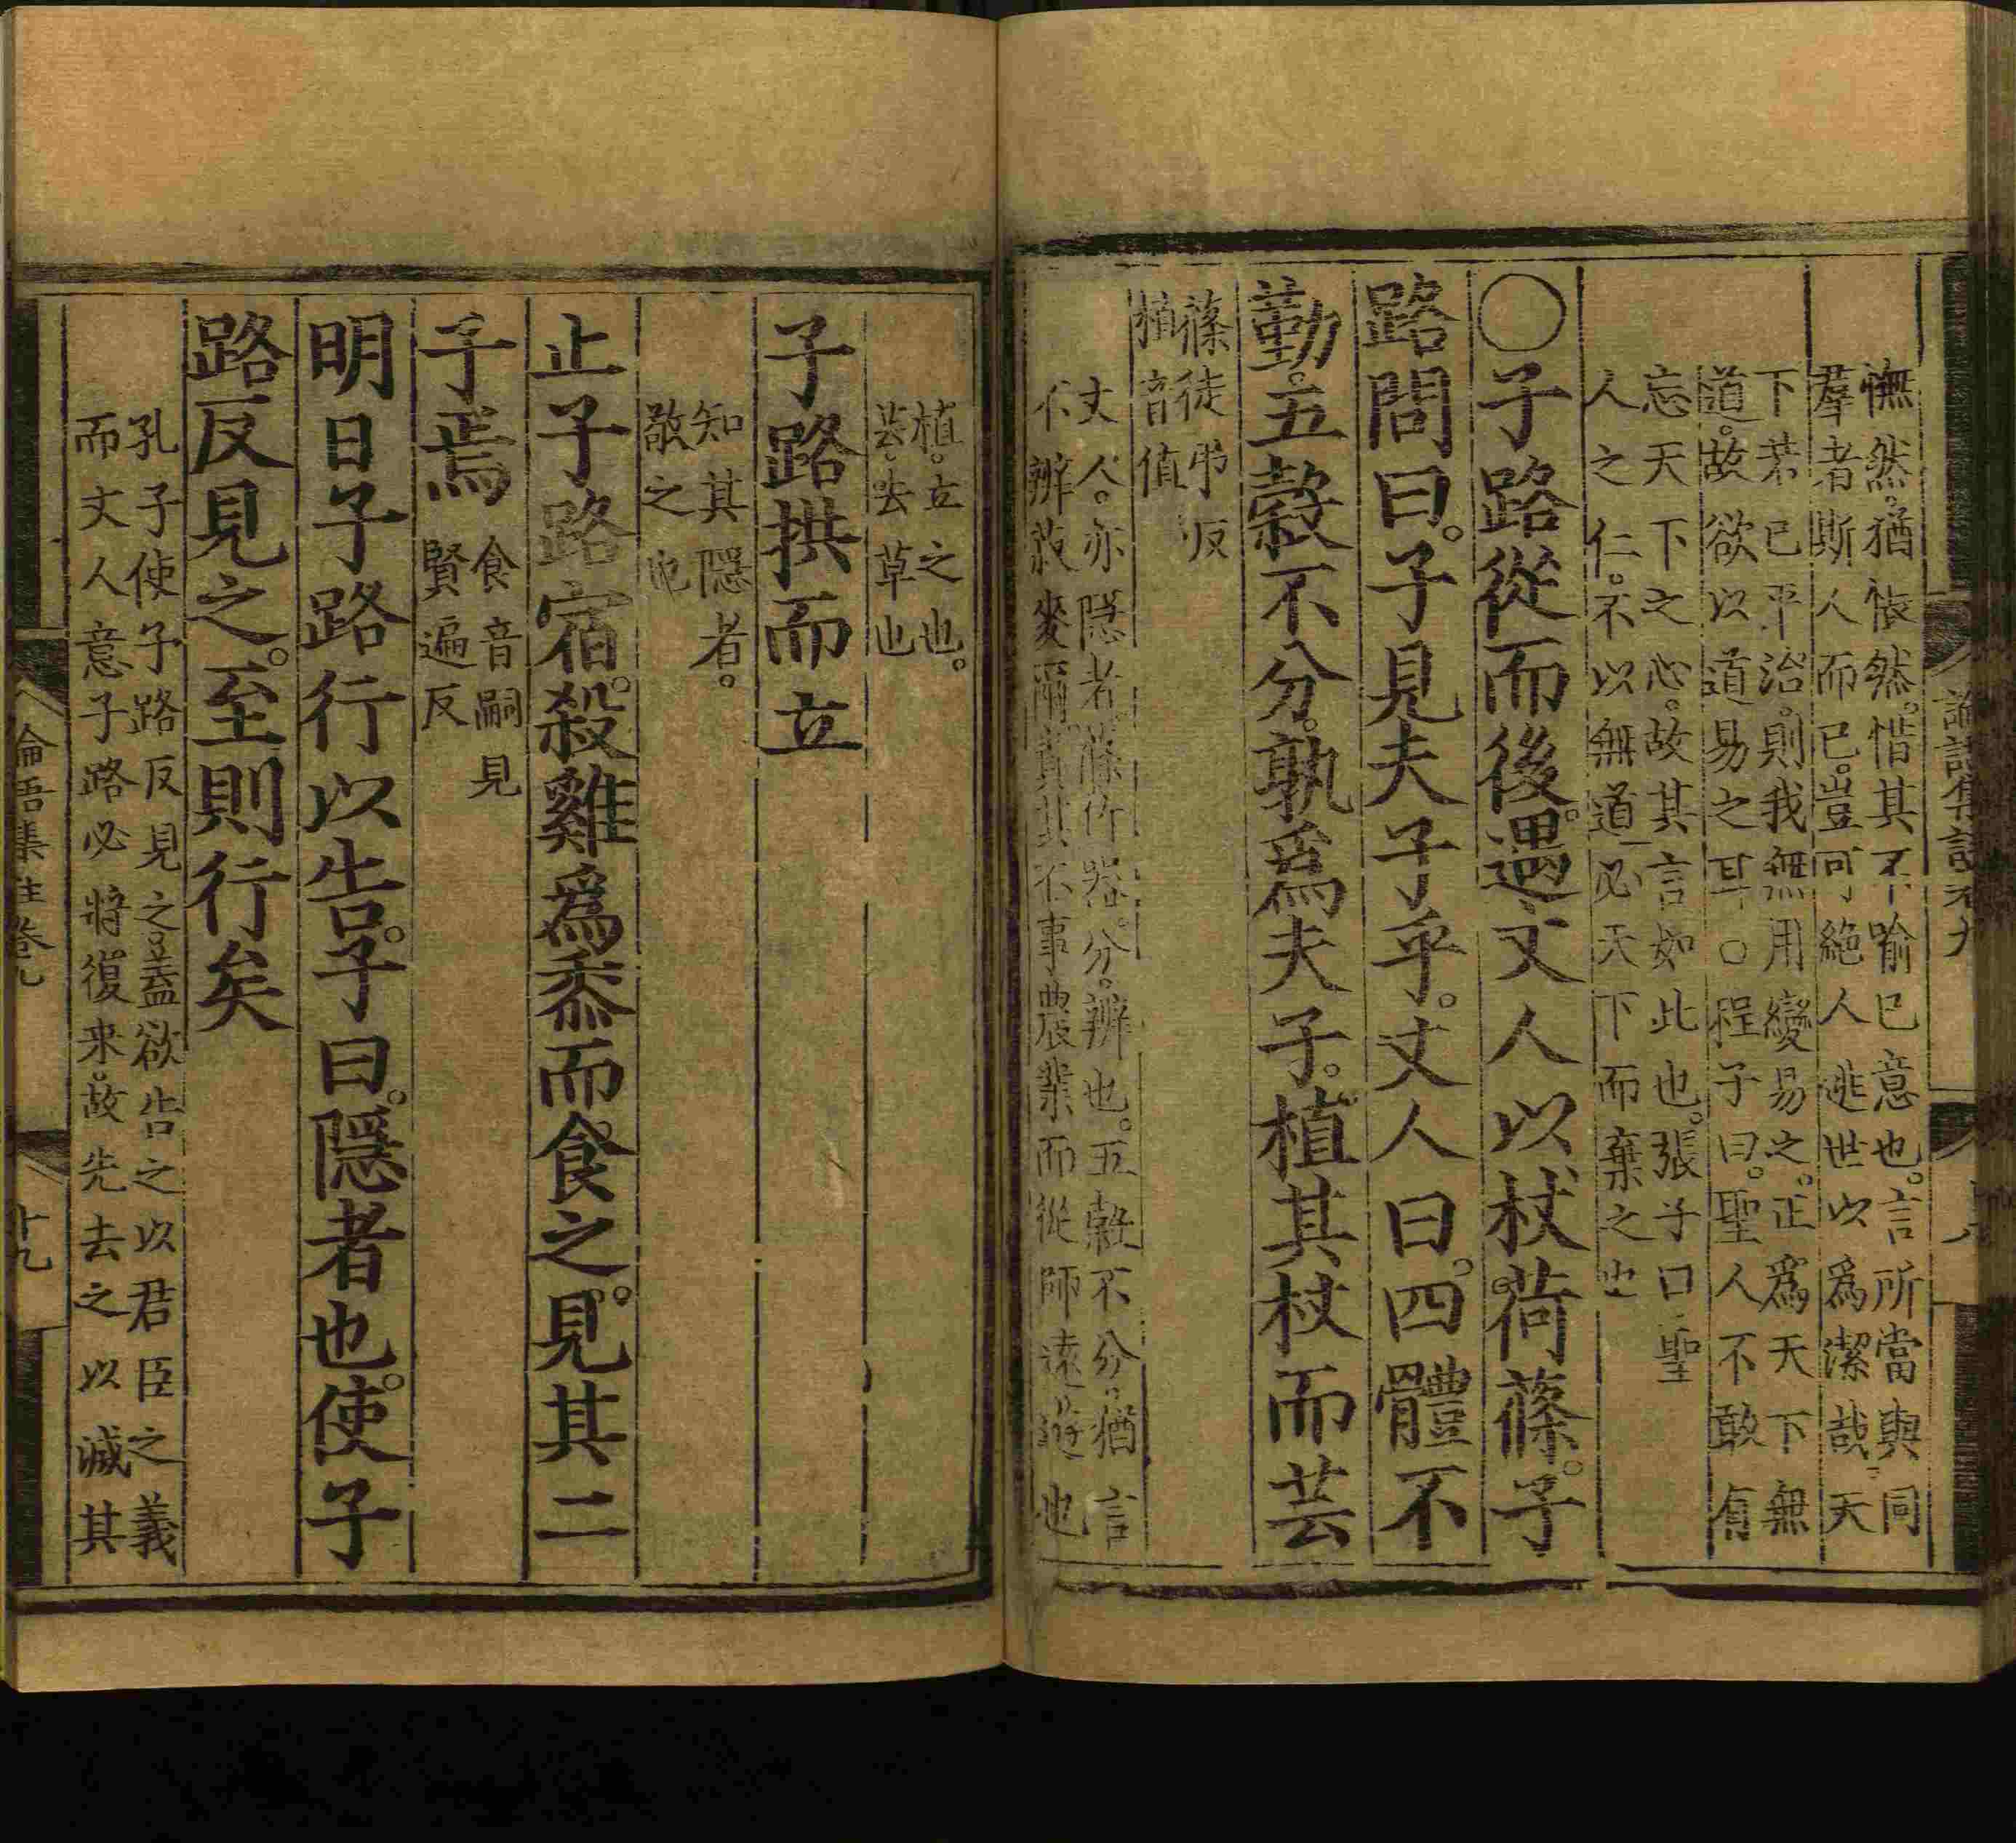 憮然。猶悵然。惜其不喻已意也。言所當與同
羣者斯人而已。豈可絕人逃世以爲潔哉。天
下若已平治。則我無用變易之。正爲天下無
道。故欲以道易之耳○程子曰。聖人不敢有
忘天下之心。故其言如此也。張子曰聖
人之仁。不以無道必天下而棄之也
○子路從而後。遇丈人以杖荷蓧。子
路問曰。子見夫子乎。丈人曰。四體不
勤。五穀不分。孰爲夫子。植其杖而芸
蓧徒弔反
植音值
丈人。亦隱者。蓧竹器。分。辨也。五穀不分。猶言
不辨菽麥爾責其不事農業而從師遠遊也
植。立之也。
芸。去草也
子路拱而立
知其隱者。
敬之也
止子路宿。殺雞爲黍而食之。見其二
子焉
食音嗣見
賢遍反
明日子路行以告。子曰。隱者也。使子
路反見之。至則行矣
孔子使子路反見之蓋欲告之以君臣之義
而丈人意子路必將復来。故先去之以滅其
論語集註卷九
十九